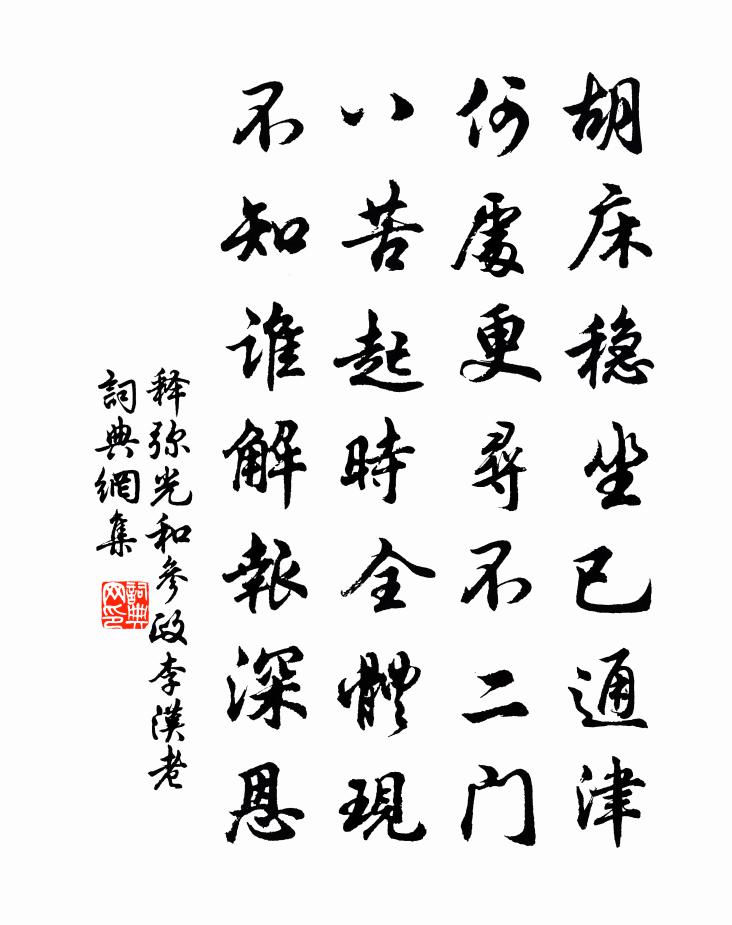 胡床穏坐已通津
何處更尋不二门
八苦起時全體現
不知谁解報深恩
释弥光和参政李漢老
詞典網集
詞典网印